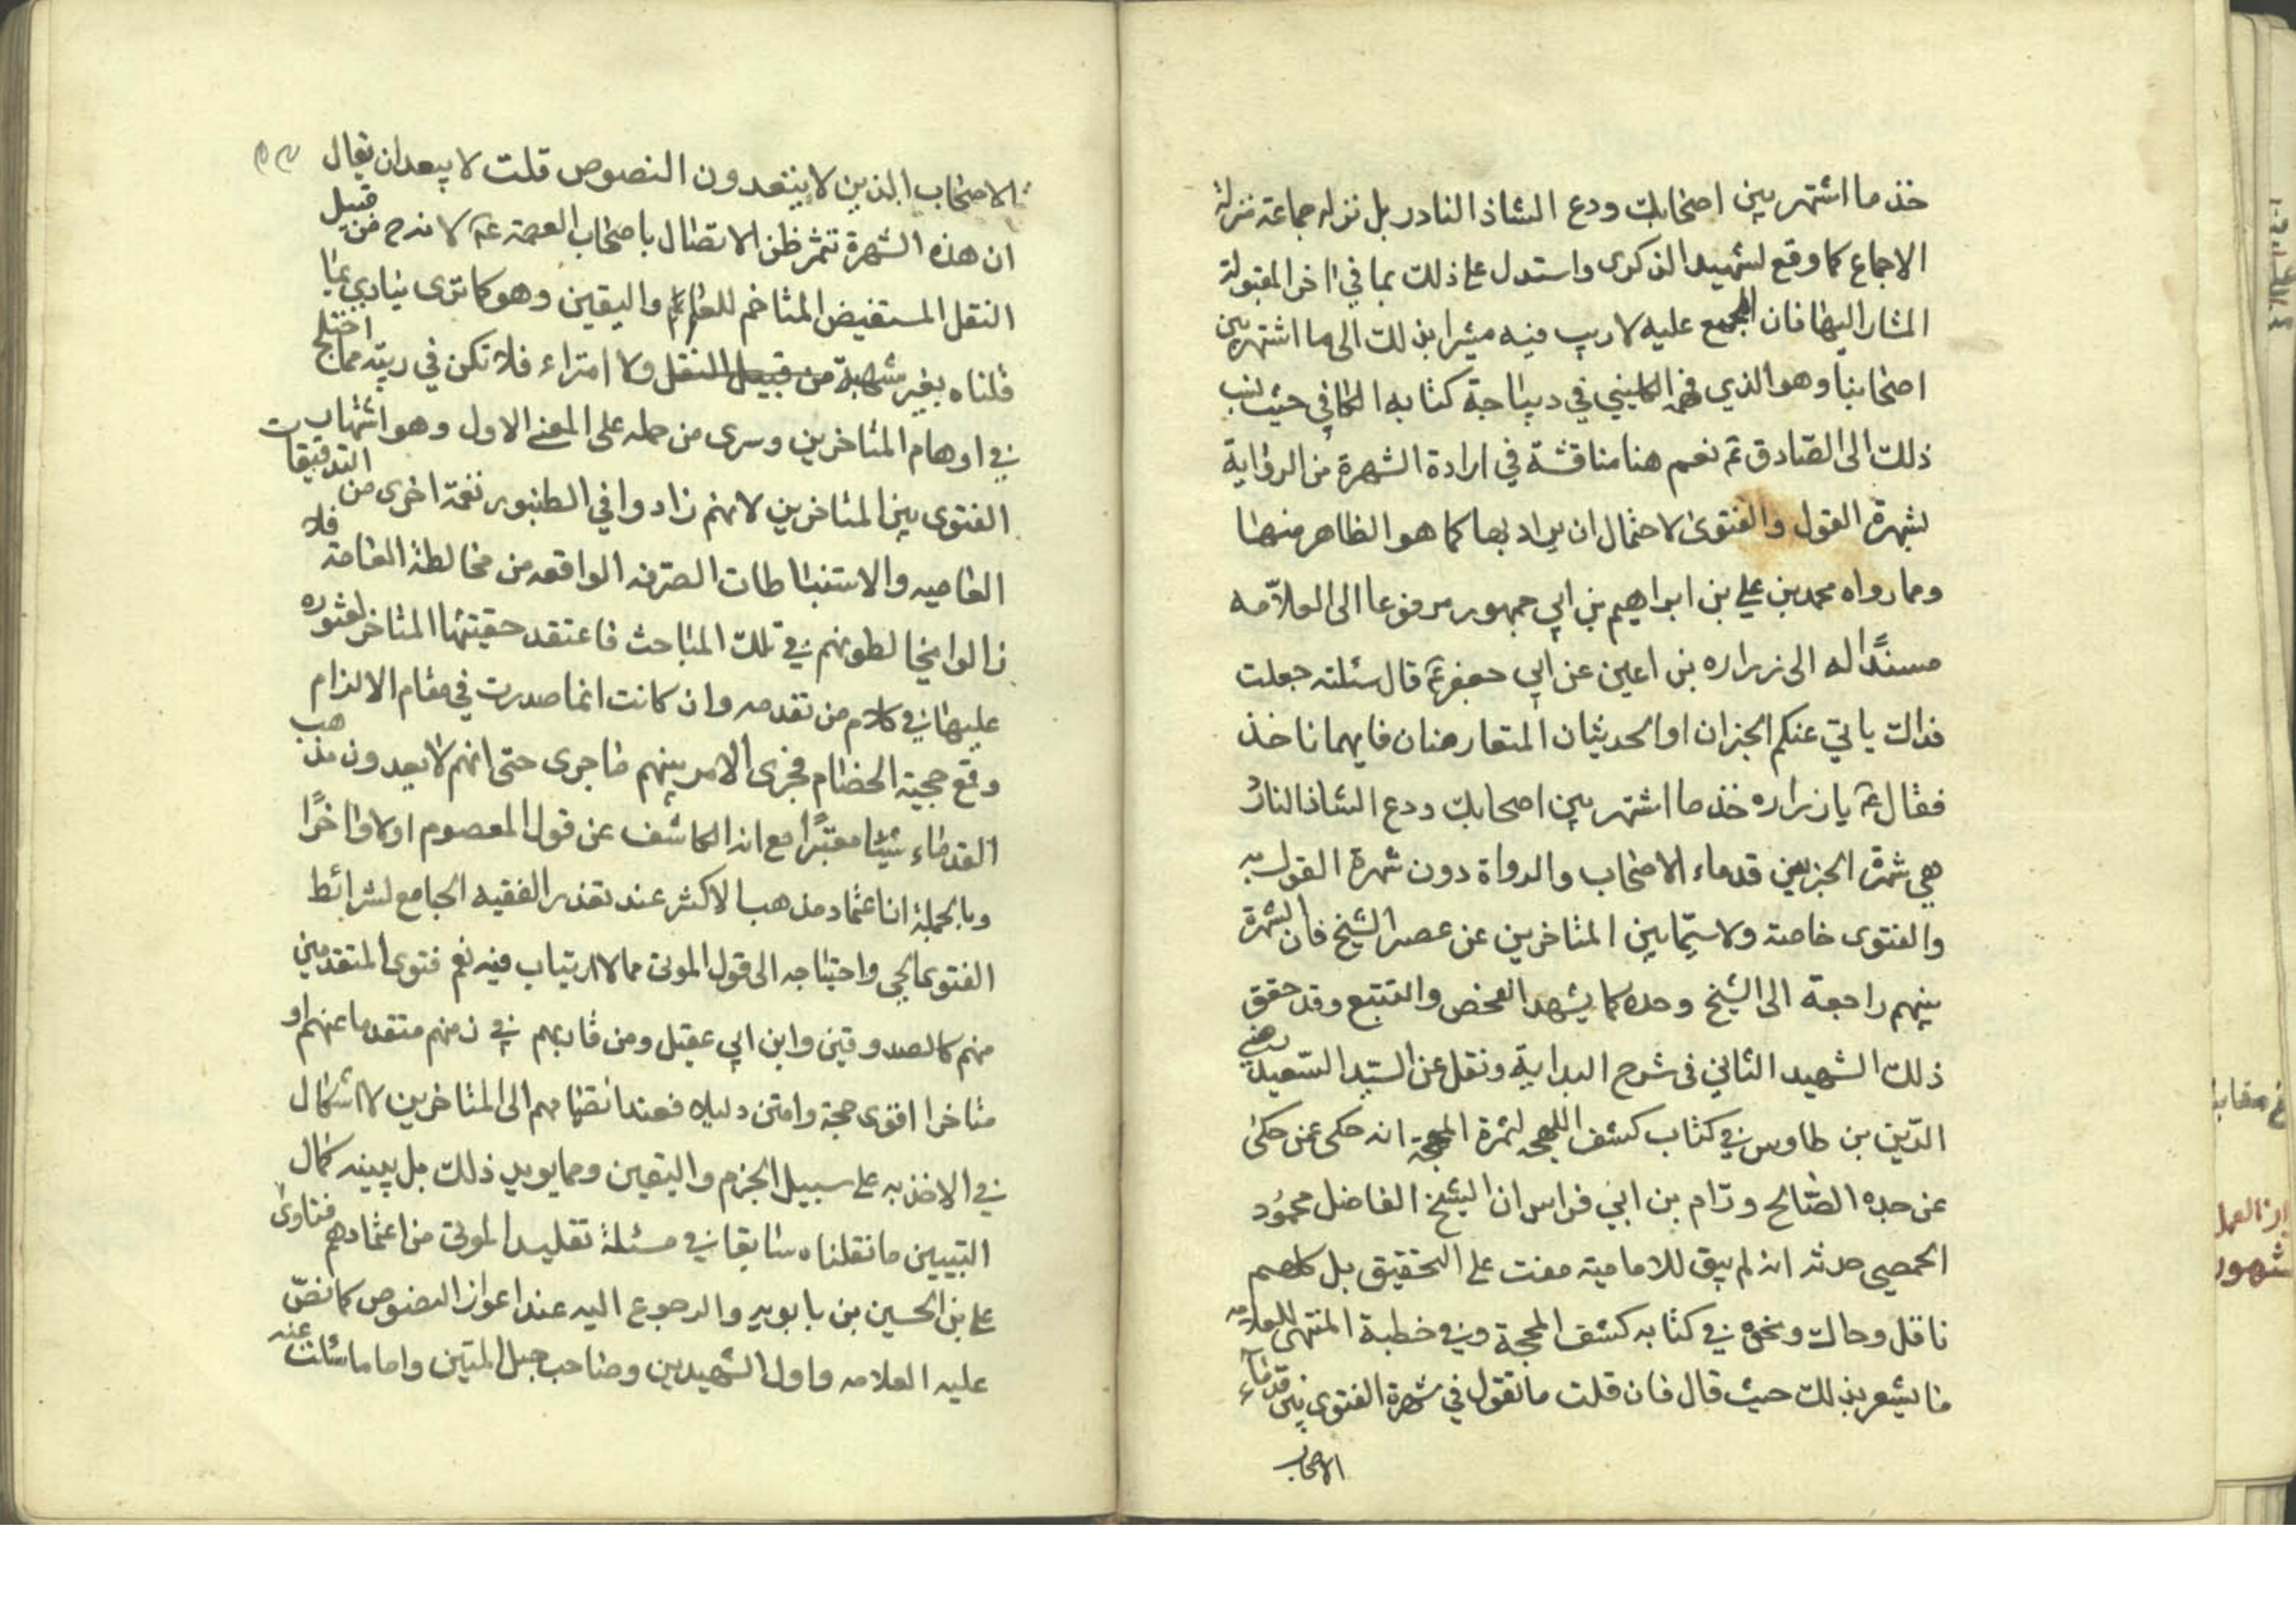 خذ ما اشتهر بين اصحابك ودع الشاذ النادر بل نزله جماعة منزلة
الاجماع كما وقع لشهيد الذكرى واستدل على ذلك بما في اخر المقبولة
المشار اليها فان المجمع عليه لا ريب فيه مشيرا بذلك الى ما اشتهر بين
اصحابنا وهو الذي فهمه الكليني في ديباجة كتابه الكافي حيث نسب
ذلك الى الصادق ع نعم هنا مناقشة في ارادة الشهرة من الرواية
لشهرة القول والفتوى لاحتمال ان يراد بها كما هو الظاهر منها
ومما رواه محمد بن علي بن ابراهيم بن ابي جمهور مرفوعا الى العلامه
مسندا له الى زراره بن اعين عن ابي جعفر ع قال سئلته جعلت
فداك ياتي عنكم الخبران او الحديثان المتعارضان فايهما ناخذ
فقال ع يا زراره خذ ما اشتهر بين اصحابك ودع الشاذ النادر
هي شهرة الخبر بين قدماء الاصحاب والرواة دون شهرة القول به
والفتوى خاصة ولا سيما بين المتاخرين عن عصر الشيخ فان الشهرة
بينهم راجعة الى الشيخ وحده كما يشهد الفحص والتتبع وقد حقق
ذلك الشهيد الثاني في شرح البداية ونقل عن السيد السعيد رضي
الدين بن طاوس في كتاب كشف المحجه لثمرة المهجة انه حكى عن حكى
عن جده الصالح ورام بن ابي فراس ان الشيخ الفاضل محمود
الحمصي حدثه انه لم يبق للامامية مفت على التحقيق بل كلهم
ناقل وحاك ونحوه في كتابه كشف المحجة وفي خطبة المنتهى للعلامه
ما يشعر بذلك حيث قال فان قلت ما تقول في شهرة الفتوى بين قدماء
الاصحاب
الاصحاب الذين لا يتعدون النصوص قلت لا يبعد ان يقال
ان هذه الشهرة تثمر ظن الاتصال باصحاب العصمة ع لاندرج من قبيل
النقل المستفيض المتاخم للعلم واليقين وهو كما ترى ينادي بما
قلناه بغير شهبة من قبيل النقل ولا امتراء فلا تكن في ريبة مما اختلج
في اوهام المتاخرين وسرى من حمله على المعنى الاول وهو اشتهار
الفتوى بين المتاخرين لانهم زادوا في الطنبور نغمة اخرى من التدقيقات
العاميه والاستنباطات الصرفه الواقعه من مخالطة العامة فلا
زالوا يخالطونهم في تلك المباحث فاعتقد حقيتها المتاخر لعثوره
عليها في كلام من تقدمه وان كانت انما صدرت في مقام الالزام
وقع حجية الخصام فجرى الامر بينهم ما جرى حتى انهم لا يعدون مذهب
القدماء شيئا معتبرا مع انه الكاشف عن قول المعصوم اولا واخرا
وبالجملة ان اعتماد مذهب الاكثر عند تعذر الفقيه الجامع لشرائط
الفتوى الحي واحتياجه الى قول الموتى مما لا ارتياب فيه نعم فتوى المتقدمين
منهم كالصدوقين وابن ابي عقيل ومن قاربهم في زمنهم متقدما عنهم او
متاخرا اقوى حجة وامتن دليلا فعند انضمامهم الى المتاخرين لا اشكال
في الاخذ به على سبيل الجزم واليقين ومما يويد ذلك بل يبينه كمال
التبيين ما نقلناه سابقا في مسئلة تقليد الموتى من اعتمادهم فتاوى
علي بن الحسين بن بابويه والرجوع اليه عند اعواز النصوص كما نص
عليه العلامه واول الشهيدين وصاحب حبل المتين واما ما سئلت عنه